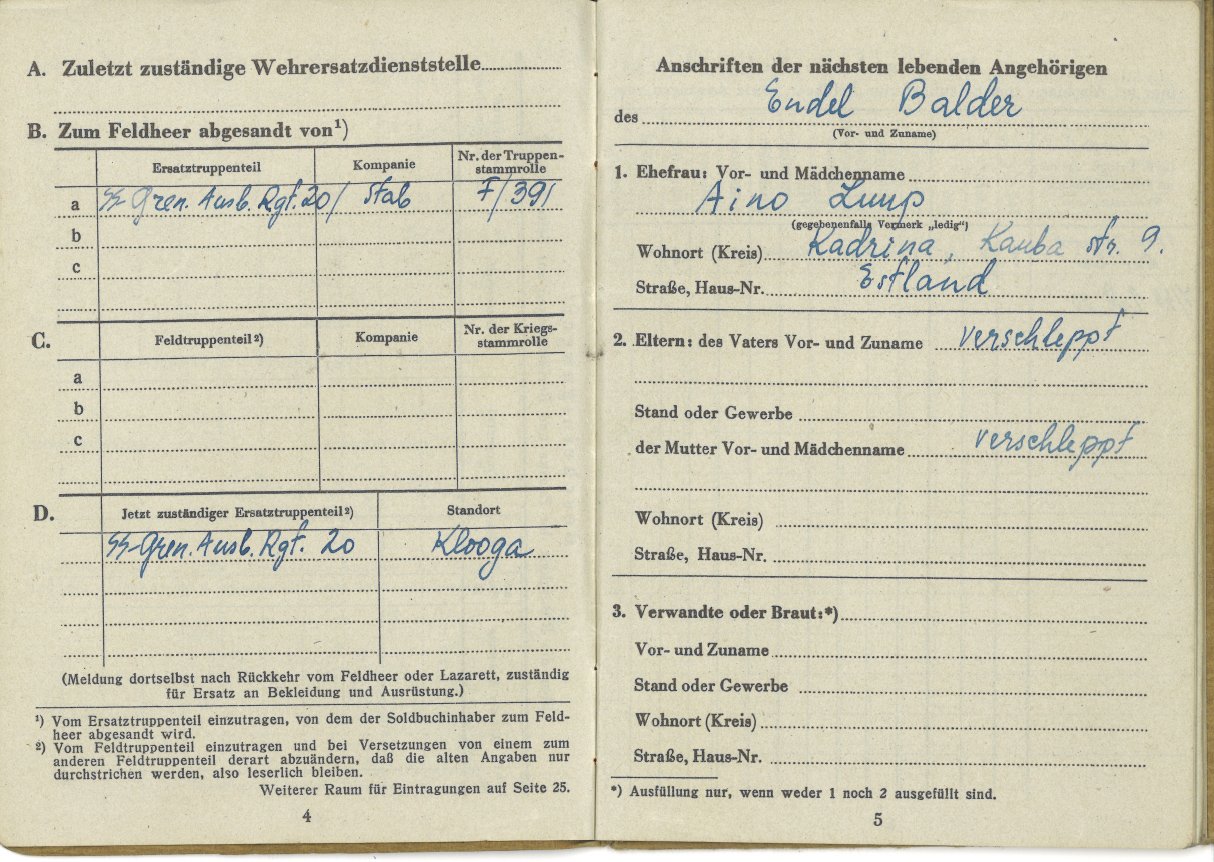 A. Zuletzt zuständige Wehrersatzdienststelle
B. Zum Feldheer abgesandt von¹)
Ersatztruppenteil Kompanie Nr. der Truppen-
stammrolle
a SS Gren. Ausb. Rgt. 20/ Stab F/391
b
c
C. Feldtruppenteil²) Kompanie Nr. der Kriegs-
stammrolle
a
b
c
D. Jetzt zuständiger Ersatztruppenteil²) Standort
SS-Gren. Ausb. Rgt. 20 Klooga
(Meldung dortselbst nach Rückkehr vom Feldheer oder Lazarett, zuständig
für Ersatz an Bekleidung und Ausrüstung.)
¹) Vom Ersatztruppenteil einzutragen, von dem der Soldbuchinhaber zum Feld-
heer abgesandt wird.
²) Vom Feldtruppenteil einzutragen und bei Versetzungen von einem zum
anderen Feldtruppenteil derart abzuändern, daß die alten Angaben nur
durchstrichen werden, also leserlich bleiben.
Weiterer Raum für Eintragungen auf Seite 25.
4
Anschriften der nächsten lebenden Angehörigen
des Endel Balder
(Vor- und Zuname)
1. Ehefrau: Vor- und Mädchenname
Aino Luup
(gegebenenfalls Vermerk „ledig“)
Wohnort (Kreis) Kadrina, Kauba str. 9.
Straße, Haus-Nr. Estland
2. Eltern: des Vaters Vor- und Zuname verschleppt
Stand oder Gewerbe
der Mutter Vor- und Mädchenname verschleppt
Wohnort (Kreis)
Straße, Haus-Nr.
3. Verwandte oder Braut:*)
Vor- und Zuname
Stand oder Gewerbe
Wohnort (Kreis)
Straße, Haus-Nr.
*) Ausfüllung nur, wenn weder 1 noch 2 ausgefüllt sind.
5